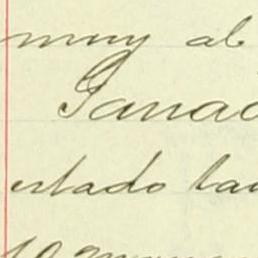 muy ab
Ganad
estado la